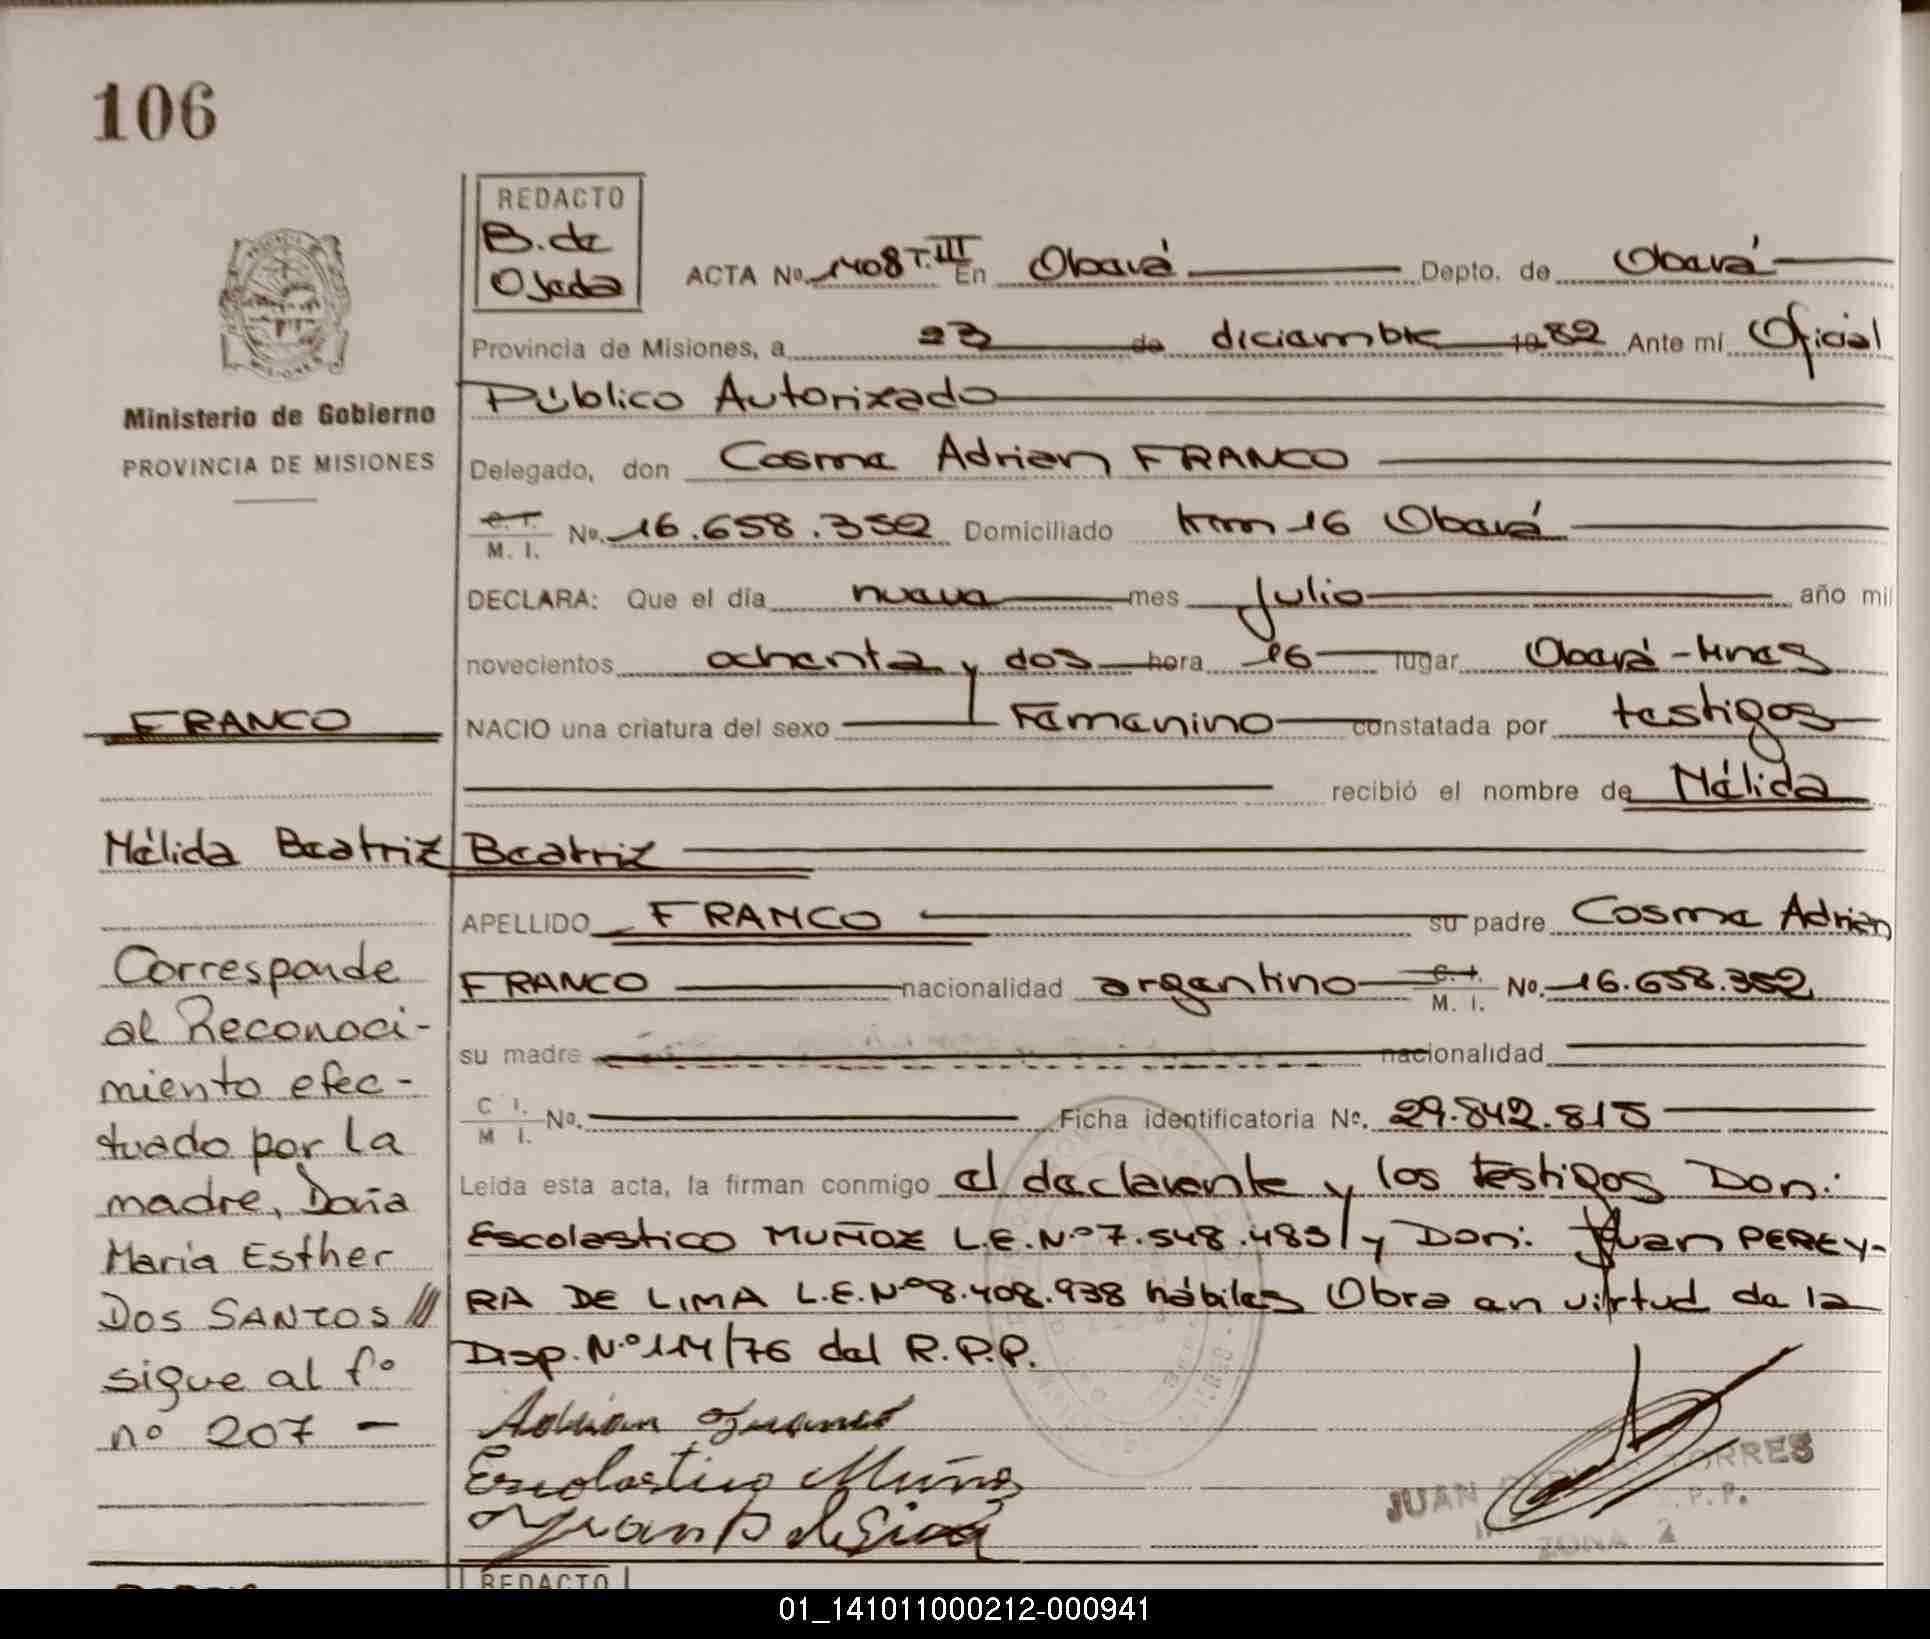 106
REDACTO
B. de
Ojeda
ACTA No. 1408 T.III En Oberá Depto. de Oberá
Provincia de Misiones, a 23 de diciembre 1982 Ante mí Oficial
Público Autorizado
Ministerio de Gobierno
PROVINCIA DE MISIONES
Delegado, don Cosme Adrian FRANCO
C. I.
M. I. No. 16.658.352 Domiciliado km 16 Oberá
DECLARA: Que el día nueve mes julio año mil
novecientos ochenta y dos hora 16 lugar Oberá-Mnes
FRANCO
NACIO una criatura del sexo Femenino constatada por testigos
recibió el nombre de Nélida
Nélida Beatriz
Beatriz
APELLIDO FRANCO su padre Cosme Adrian
FRANCO nacionalidad argentino C. I. M. I. No. 16.658.352
su madre nacionalidad
C I. M I. No. Ficha identificatoria No. 29.842.815
Leida esta acta, la firman conmigo el declarente y los testigos Don:
Escolastico MUÑOZ L.E.Nº7.548.483/y Don: Juan PEREY-
RA DE LIMA L.E.Nº8.408.938 hábiles Obra en virtud de la
Disp.Nº114/76 del R.P.P.
Corresponde
al Reconoci-
miento efec-
tuado por la
madre, Doña
María Esther
DOS SANTOS///
sigue al fº
nº 207 -
Adrian Franco
Escolastico Muñoz
Juan
JUAN TORRES
P. P.
ZONA 2
REDACTO
01_141011000212-000941